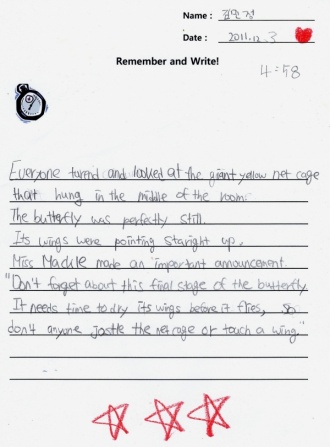 Name : 김민정
Date : 2011.12.3
Remember and Write!
4:58
Everyone turend and looked at the giant yellow net cage
that hung in the middle of the room.
The butterfly was perfectly still.
Its wings were pointing staright up.
Miss Mackle made an important announcement.
"Don't forget about this final stage of the butterfly
It needs time to dry its wings before it flies, so
don't anyone jostle the net cage or touch a wing."